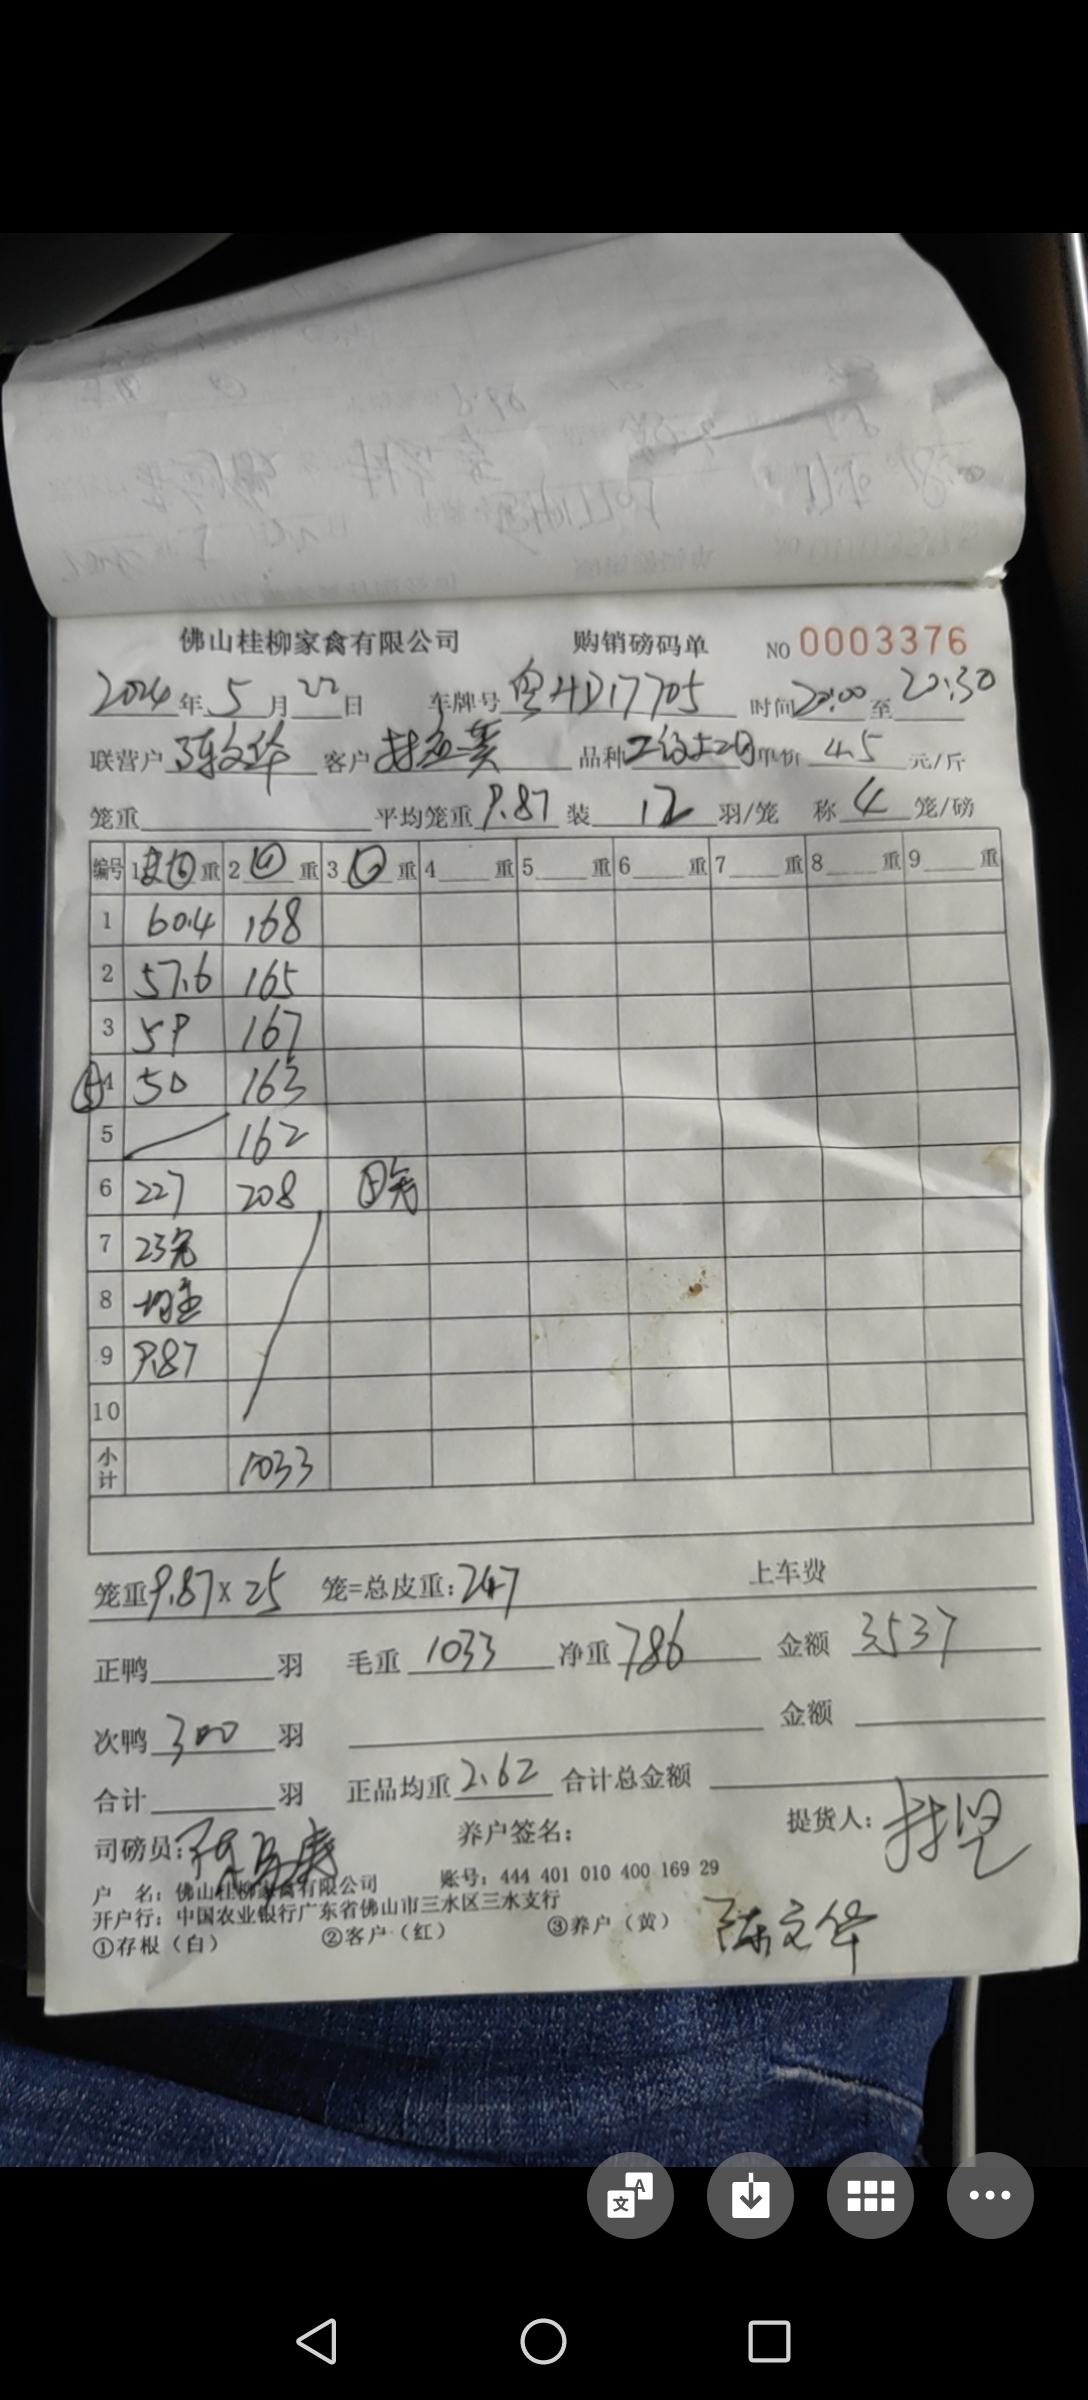 佛山桂柳家禽有限公司 购销磅码单 NO 0003376
2024年5月22日 车牌号 粤HD17705 时间20:00至20:30
联营户 陈文华 客户 品种 单价 4.5 元/斤
笼重 平均笼重 9.87 装 12 羽/笼 称 4 笼/磅
编号 1 ⑥ 重 2 ④ 重 3 重 4 重 5 重 6 重 7 重 8 重 9 重
1 60.4 168
2 57.6 165
3 59 167
⑤ 4 50 163
5 162
6 227 208 ⑤笼
7 23笼
8 均重
9 9.87
10
小计 1033
笼重9.87×25 笼=总皮重:247 上车费
正鸭 羽 毛重 1033 净重 786 金额 3537
次鸭 300 羽 金额
合计 羽 正品均重 2.62 合计总金额
司磅员: 养户签名: 提货人:
户 名:佛山桂柳家禽有限公司 账号:444 401 010 400 169 29
开户行:中国农业银行广东省佛山市三水区三水支行
①存根(白) ②客户(红) ③养户(黄) 陈文华